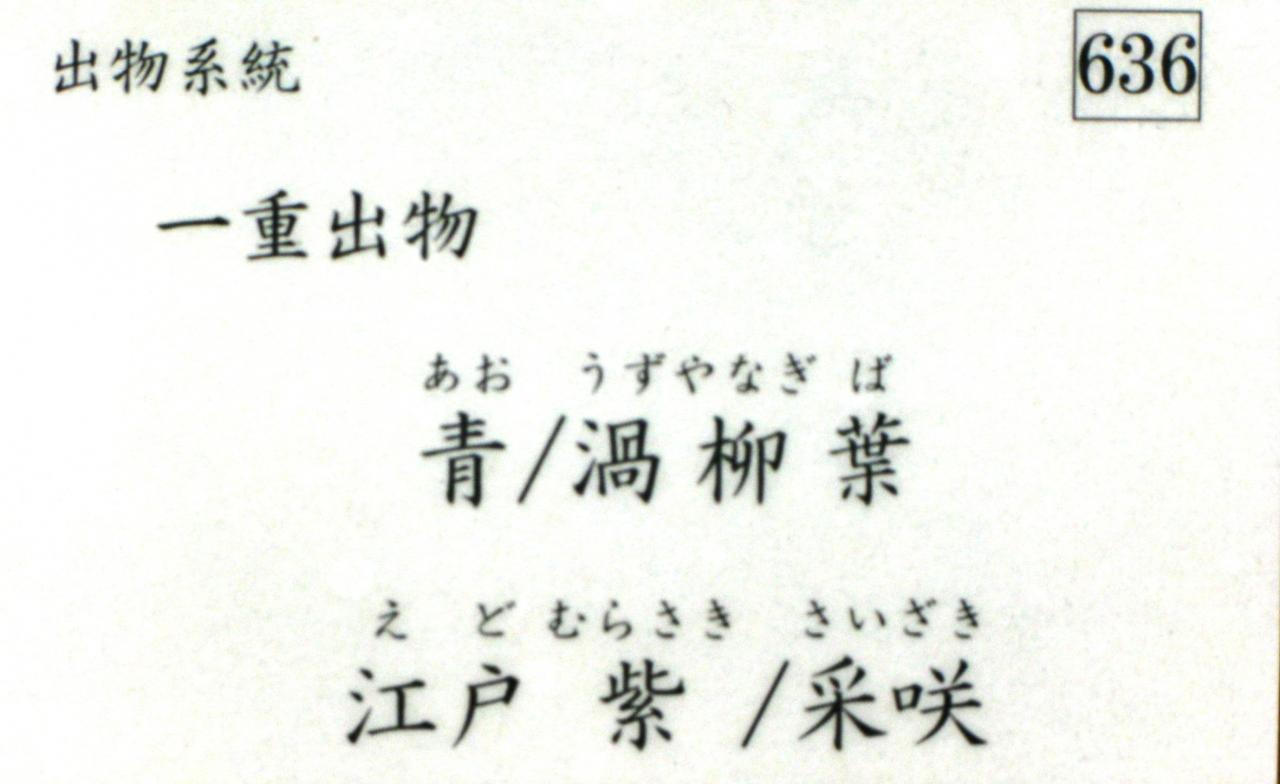 出物系統 636
一重出物
あお うずやなぎ ば
青/渦柳葉
え ど むらさき さいざき
江戸紫/采咲